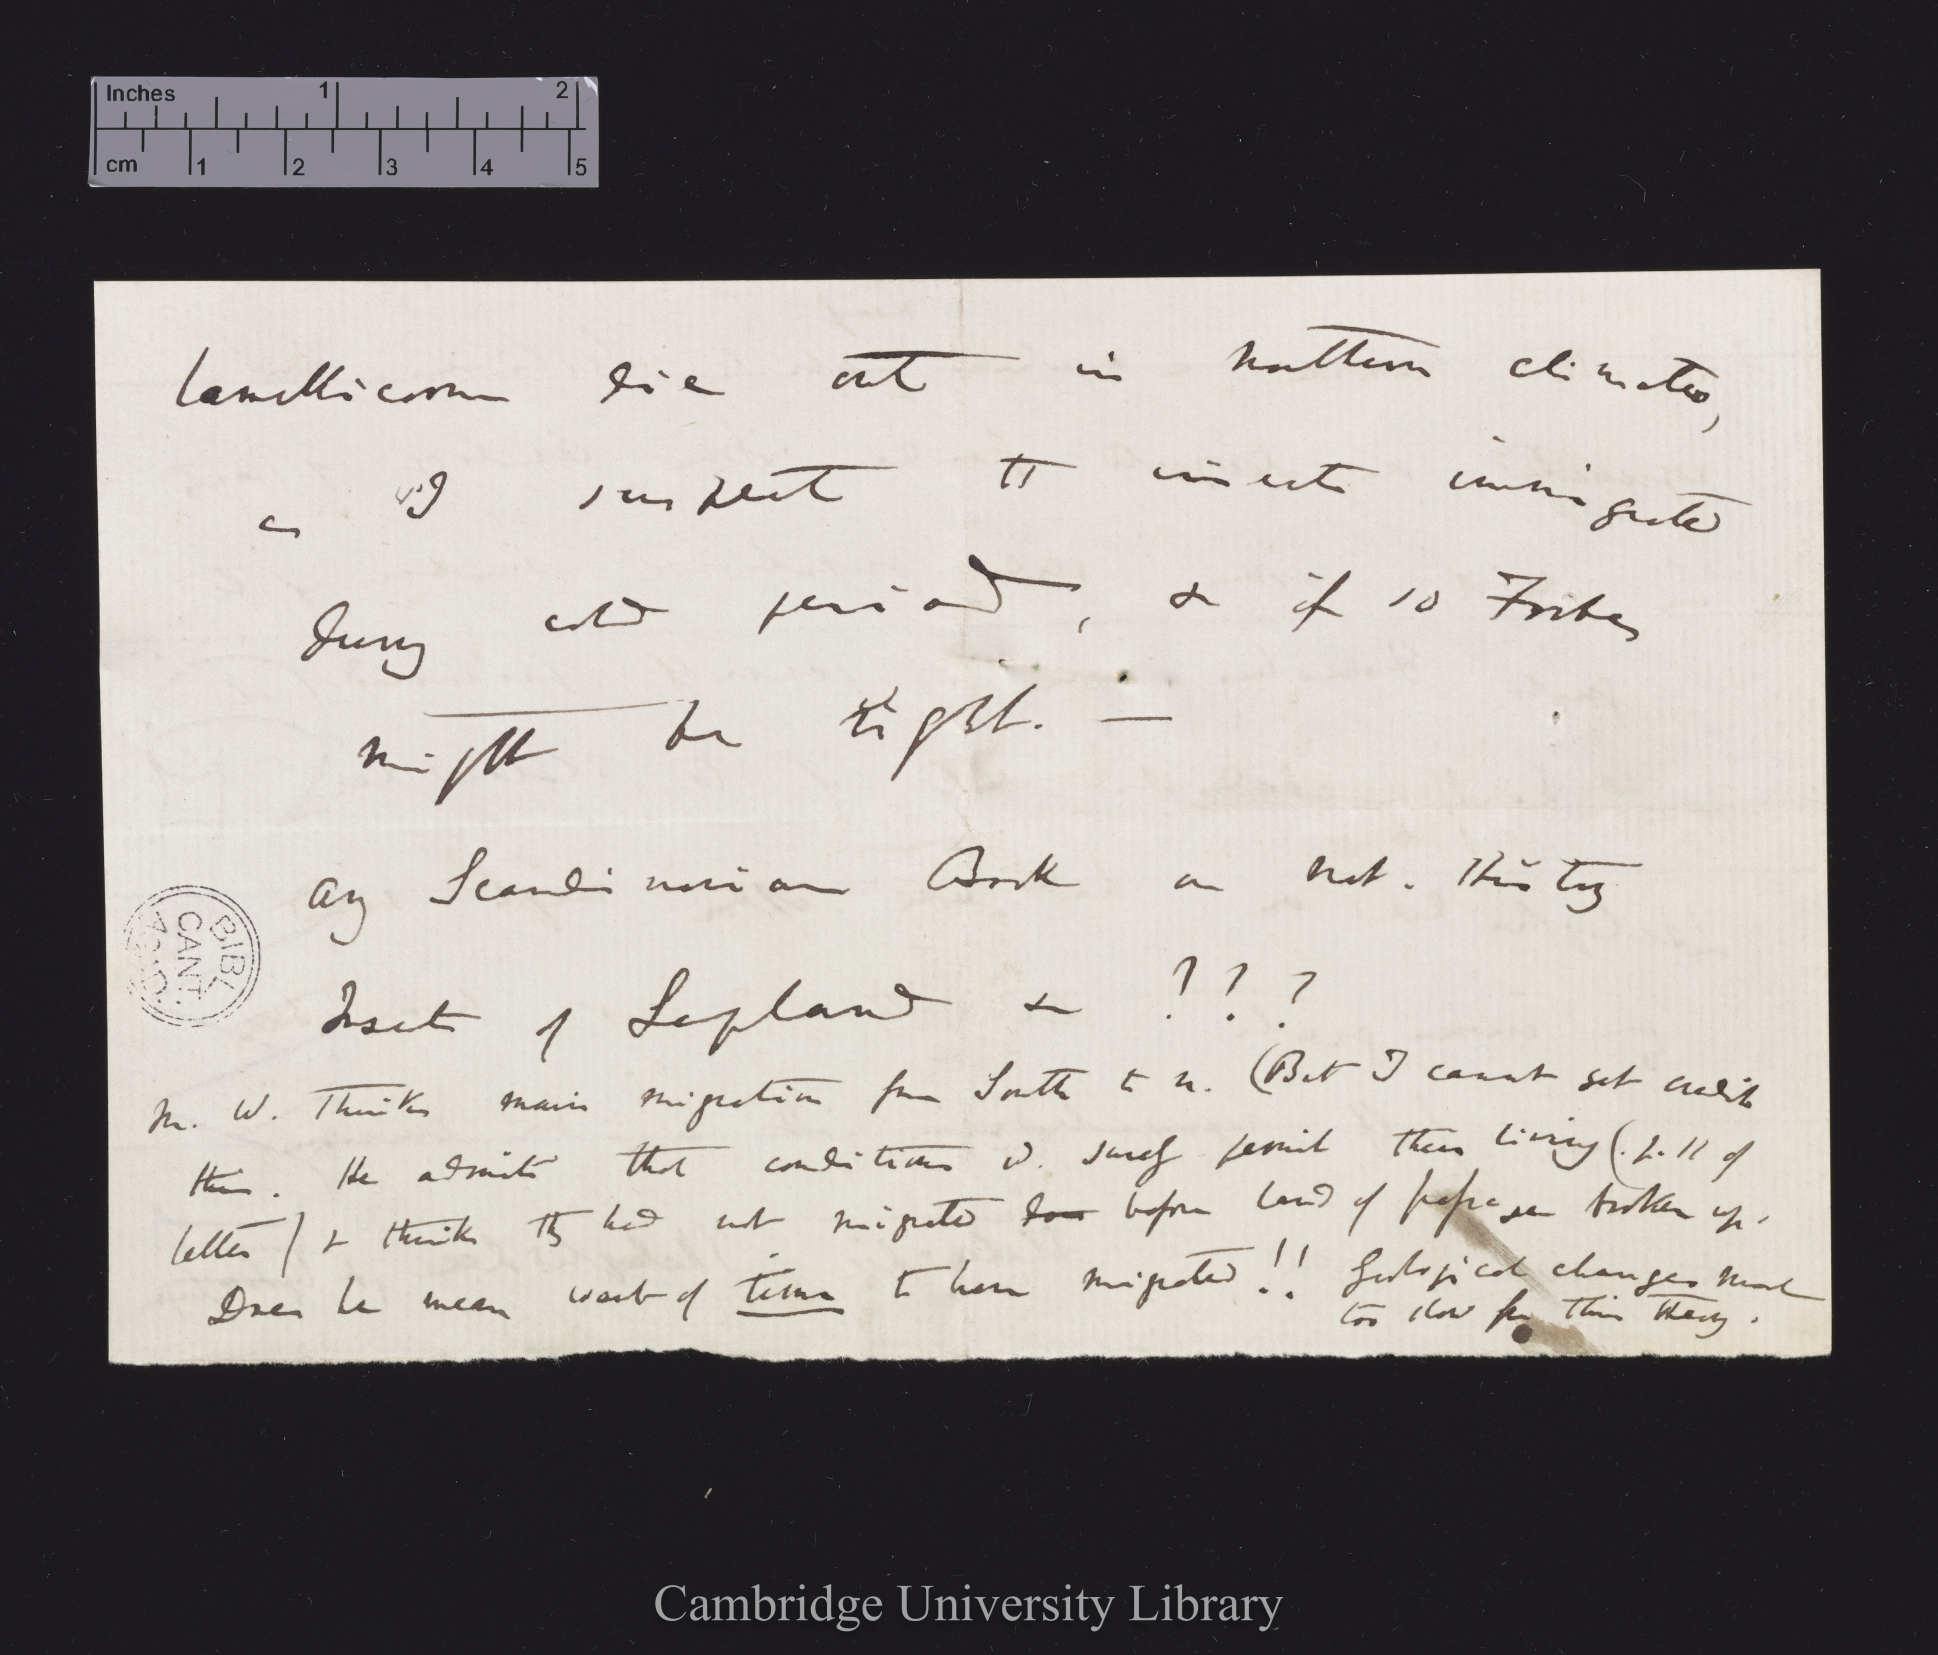 Inches 1 2
cm 1 2 3 4 5
Lamellicorn die out in northern climates,
as I suspect insects immigrated
during cold period, & if so Forbes
might be right. —
any Scandinavian Book on Nat. History
Insects of Lapland & ???
BIBL
CANT.
M. W. thinks main migration from South to N. (But I cannot get credit
this. He admits that conditions wd. surely permit their living (. p. 11 of
letter) & thinks they had not migrated before land of broken up.
Does he mean want of time to have migrated!! Geological changes most
too slow for this theory.
Cambridge University Library